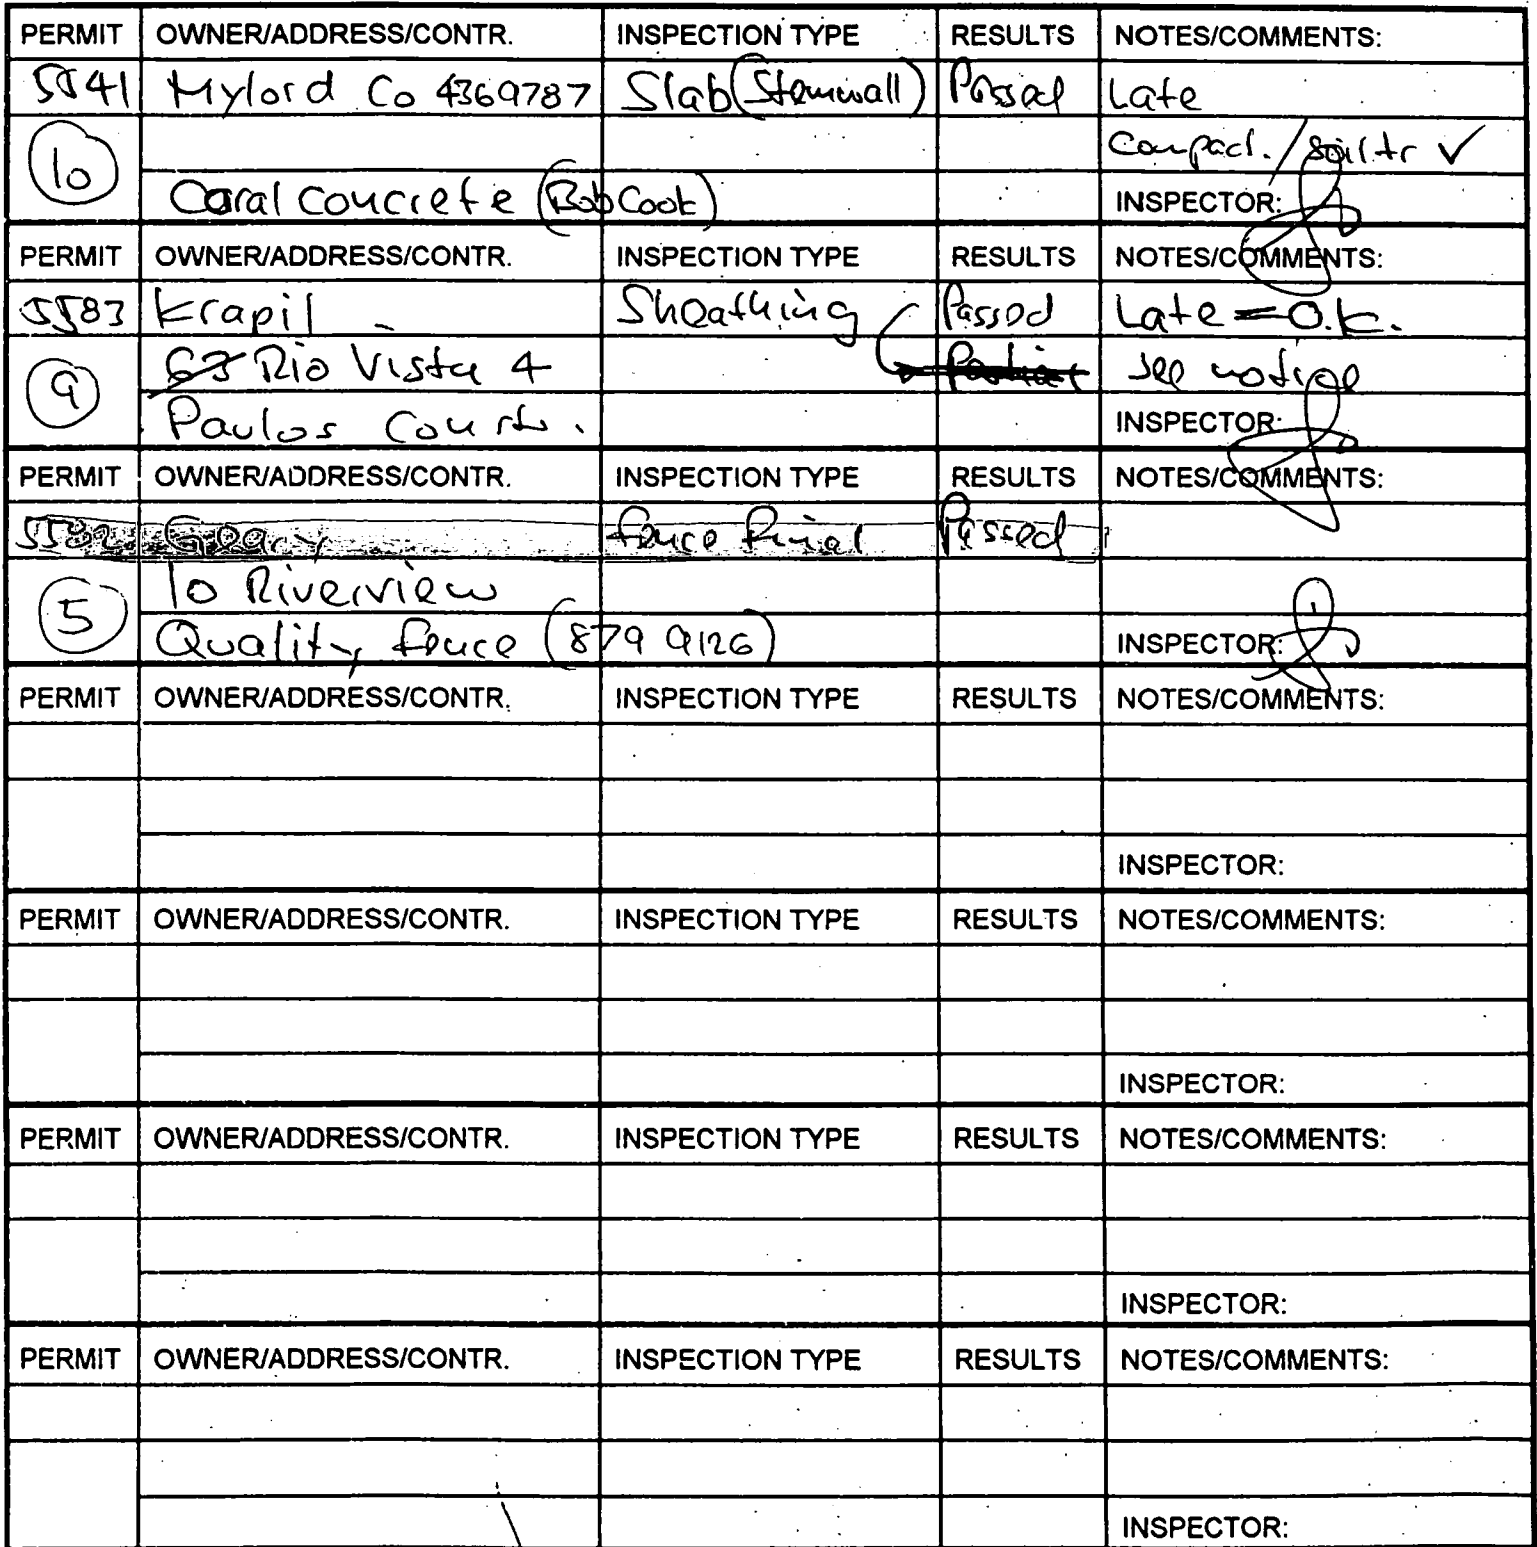 PERMIT OWNER/ADDRESS/CONTR. INSPECTION TYPE RESULTS NOTES/COMMENTS:
5541 Mylord Co 4369787 Slab (Stemwall) Passed Late
10 Compact. / soil tr ✓
Coral concrete (Bob Cook) INSPECTOR:
PERMIT OWNER/ADDRESS/CONTR. INSPECTION TYPE RESULTS NOTES/COMMENTS:
5583 Krapil Sheathing Passed Late = O.K.
9 63 Rio Vista 4 Partial see notice
Paulos Constr. INSPECTOR:
PERMIT OWNER/ADDRESS/CONTR. INSPECTION TYPE RESULTS NOTES/COMMENTS:
5582 Geary fence final Passed
5 10 Riverview
Quality fence (879 9126) INSPECTOR:
PERMIT OWNER/ADDRESS/CONTR. INSPECTION TYPE RESULTS NOTES/COMMENTS:
INSPECTOR:
PERMIT OWNER/ADDRESS/CONTR. INSPECTION TYPE RESULTS NOTES/COMMENTS:
INSPECTOR:
PERMIT OWNER/ADDRESS/CONTR. INSPECTION TYPE RESULTS NOTES/COMMENTS:
INSPECTOR:
PERMIT OWNER/ADDRESS/CONTR. INSPECTION TYPE RESULTS NOTES/COMMENTS:
INSPECTOR: